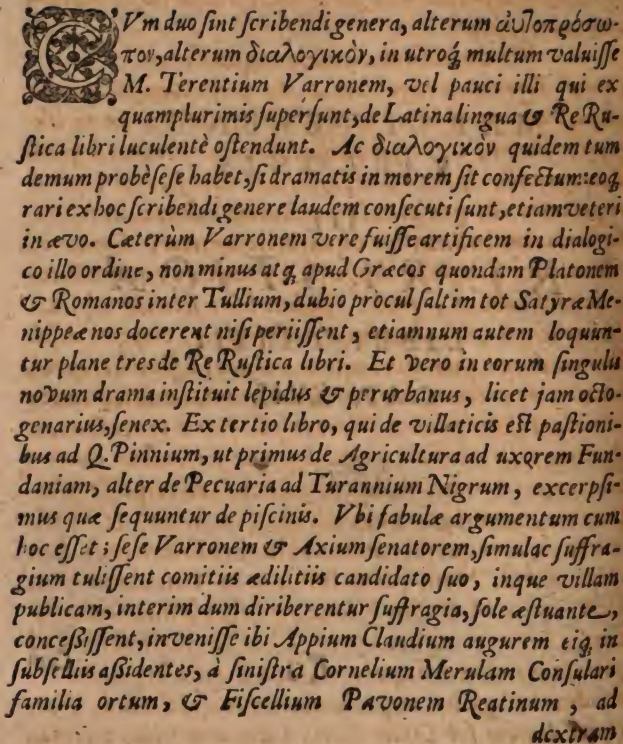 CVm duo ſint ſcribendi genera, alterum αὐτοπρόσω-
πον, alterum διαλογικὸν, in utroq́; multum valuiſſe
M. Terentium Varronem, vel pauci illi qui ex
quamplurimis ſuperſunt, de Latina lingua & Re Ru-
ſtica libri luculentè oſtendunt. Ac διαλογικὸν quidem tum
demum probè ſeſe habet, ſi dramatis in morem ſit confectum: eoq́;
rari ex hoc ſcribendi genere laudem conſecuti ſunt, etiam veteri
in ævo. Cæterùm Varronem vere fuiſſe artificem in dialogi-
co illo ordine, non minus atq́; apud Græcos quondam Platonem
& Romanos inter Tullium, dubio procul ſaltim tot Satyræ Me-
nippeæ nos docerent niſi periiſſent, etiamnum autem loquun-
tur plane tres de Re Ruſtica libri. Et vero in eorum ſingulis
novum drama inſtituit lepidus & perurbanus, licet jam octo-
genarius, ſenex. Ex tertio libro, qui de villaticis eſt paſtioni-
bus ad Q. Pinnium, ut primus de Agricultura ad uxorem Fun-
daniam, alter de Pecuaria ad Turannium Nigrum, excerpſi-
mus quæ ſequuntur de piſcinis. Vbi fabulæ argumentum cum
hoc eſſet; ſeſe Varronem & Axium ſenatorem, ſimulac ſuffra-
gium tuliſſent comitiis ædilitiis candidato ſuo, inque villam
publicam, interim dum diriberentur ſuffragia, ſole æſtuante,
conceßiſſent, inveniſſe ibi Appium Claudium augurem eiq́; in
ſubſelliis aßidentes, à ſiniſtra Cornelium Merulam Conſulari
familia ortum, & Fiſcellium Pavonem Reatinum, ad
dextram